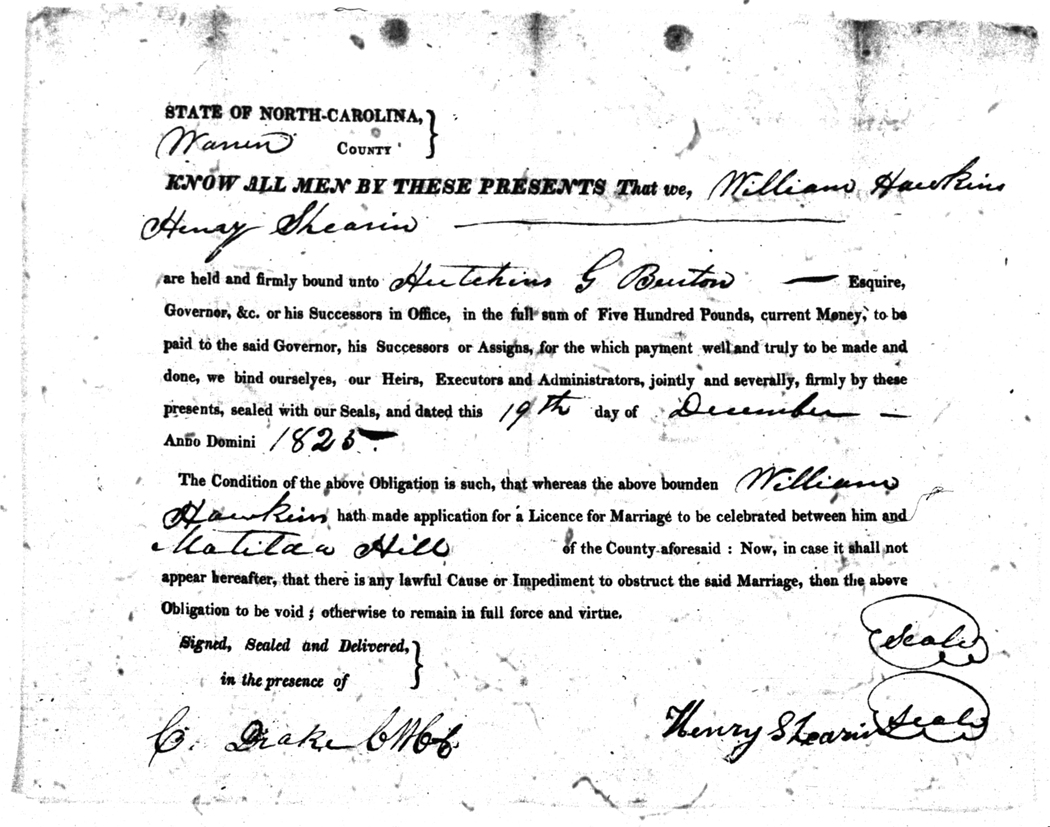 STATE OF NORTH-CAROLINA, }
Warren COUNTY
KNOW ALL MEN BY THESE PRESENTS That we, William Hawkins
Henry Shearin
are held and firmly bound unto Hutchins G Burton — Esquire,
Governor, &c. or his Successors in Office, in the full sum of Five Hundred Pounds, current Money, to be
paid to the said Governor, his Successors or Assigns, for the which payment well and truly to be made and
done, we bind ourselves, our Heirs, Executors and Administrators, jointly and severally, firmly by these
presents, sealed with our Seals, and dated this 19th day of December —
Anno Domini 1825.
The Condition of the above Obligation is such, that whereas the above bounden William
Hawkins hath made application for a Licence for Marriage to be celebrated between him and
Matilda Hill of the County aforesaid : Now, in case it shall not
appear hereafter, that there is any lawful Cause or Impediment to obstruct the said Marriage, then the above
Obligation to be void ; otherwise to remain in full force and virtue.
Signed, Sealed and Delivered, }
in the presence of
Seal
C. Drake CWCC
Henry Shearin Seal